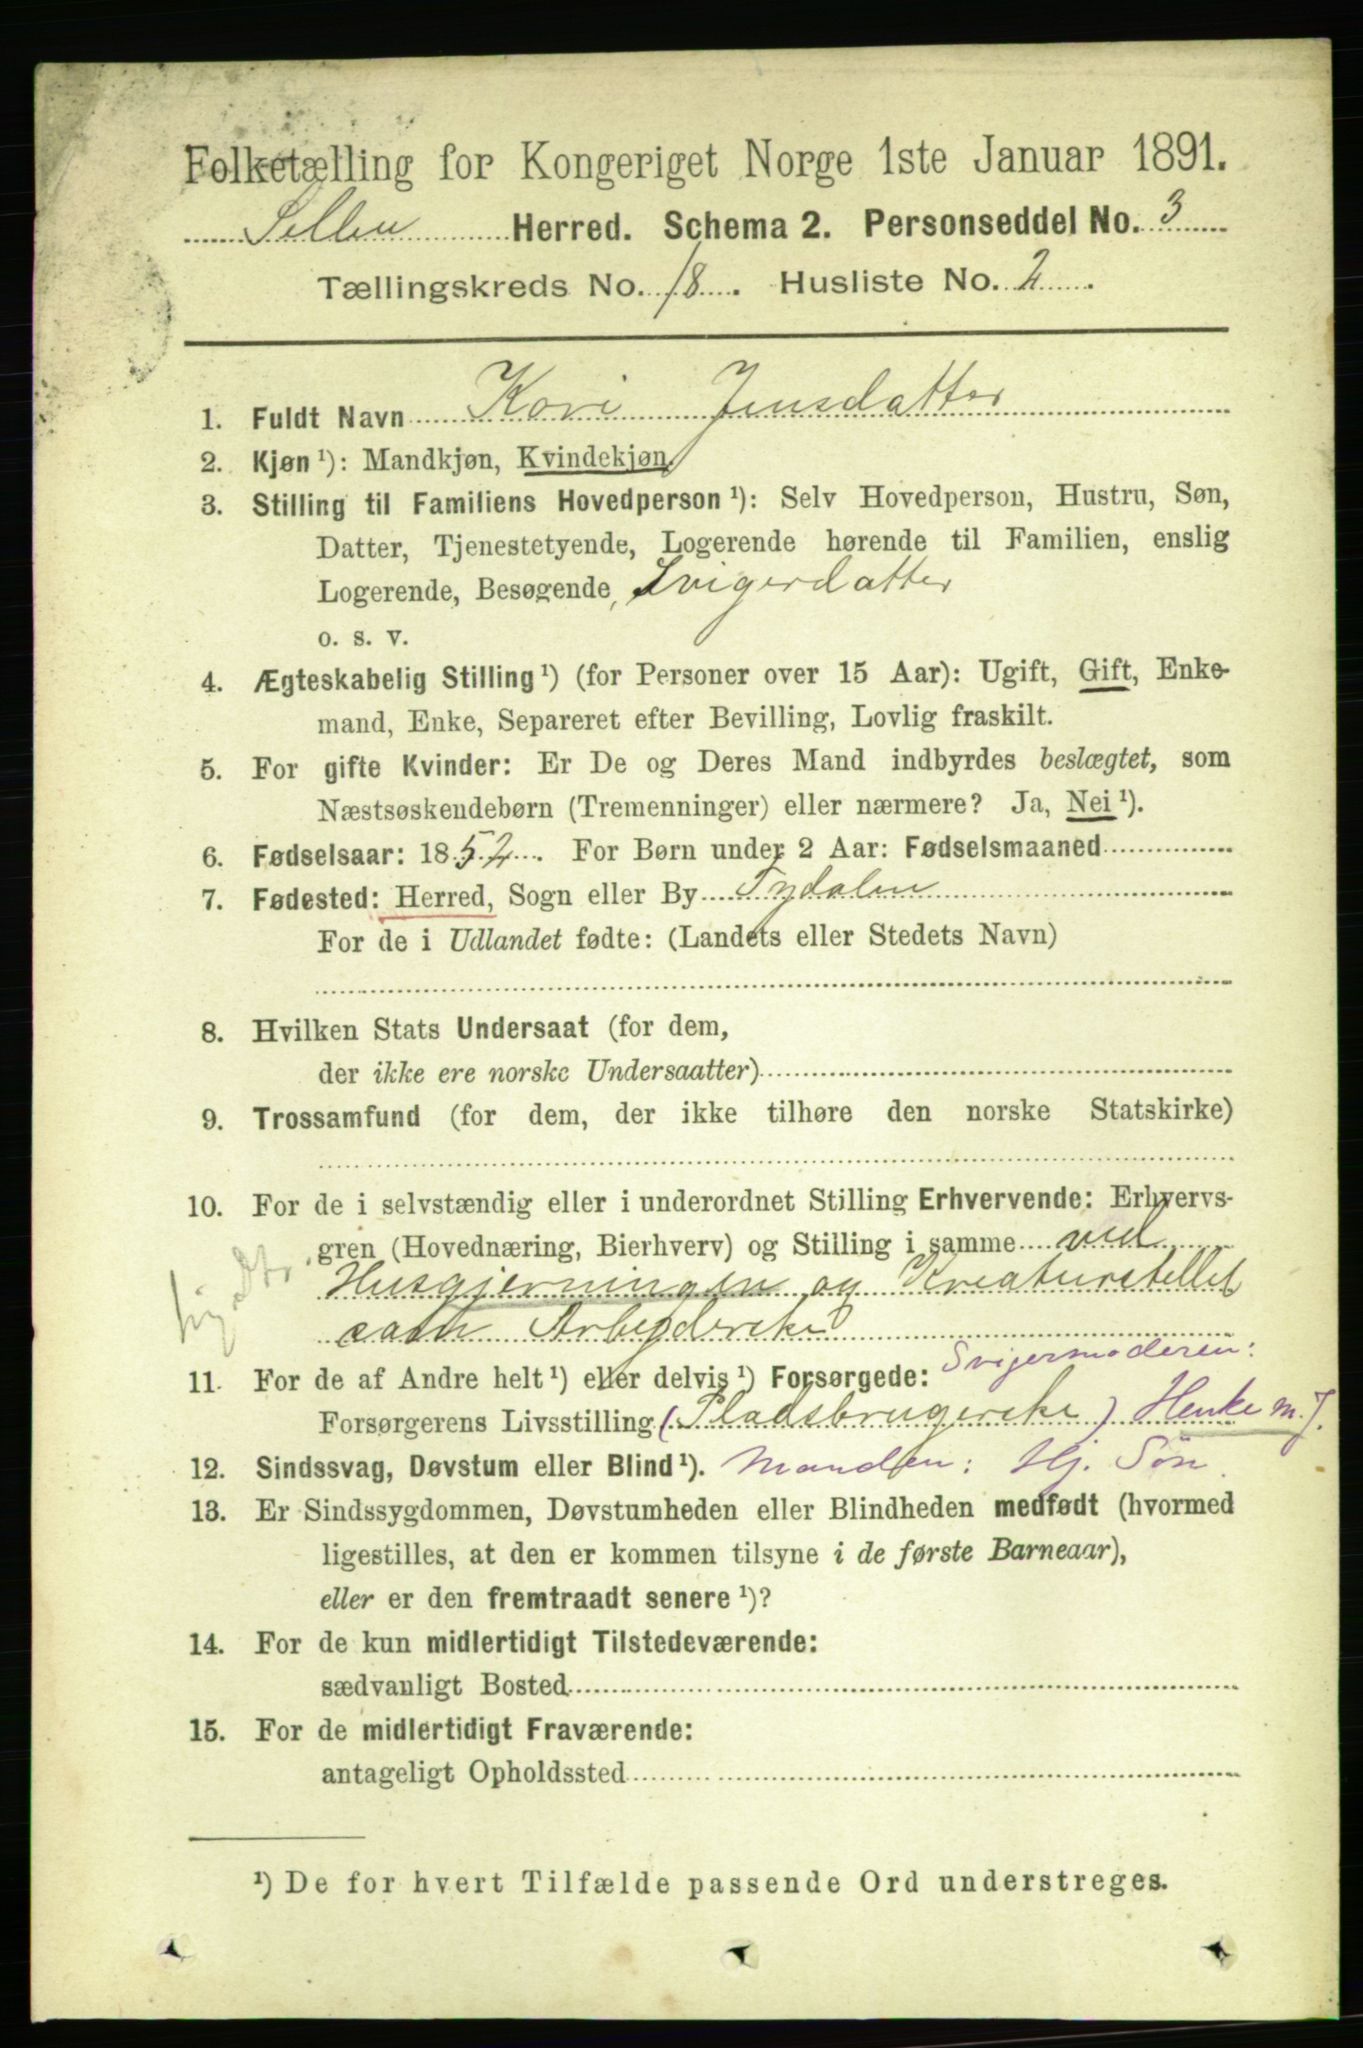 Folketælling for Kongeriget Norge 1ste Januar 1891.
Selbu Herred. Schema 2. Personseddel No. 3
Tællingskreds No. 18. Husliste No. 2.
1. Fuldt Navn Kari Jensdatter
2. Kjøn ¹): Mandkjøn, Kvindekjøn.
3. Stilling til Familiens Hovedperson ¹): Selv Hovedperson, Hustru, Søn,
Datter, Tjenestetyende, Logerende hørende til Familien, enslig
Logerende, Besøgende, Svigerdatter
o. s. v.
4. Ægteskabelig Stilling ¹) (for Personer over 15 Aar): Ugift, Gift, Enke-
mand, Enke, Separeret efter Bevilling, Lovlig fraskilt.
5. For gifte Kvinder: Er De og Deres Mand indbyrdes beslægtet, som
Næstsøskendebørn (Tremenninger) eller nærmere? Ja, Nei ¹).
6. Fødselsaar: 1852. For Børn under 2 Aar: Fødselsmaaned
7. Fødested: Herred, Sogn eller By Tydalen
For de i Udlandet fødte: (Landets eller Stedets Navn)
8. Hvilken Stats Undersaat (for dem,
der ikke ere norske Undersaatter)
9. Trossamfund (for dem, der ikke tilhøre den norske Statskirke)
10. For de i selvstændig eller i underordnet Stilling Erhvervende: Erhvervs-
gren (Hovednæring, Bierhverv) og Stilling i samme ved
Husgjerningen og Kreaturstellet
som Arbejderske
Svigermoderen:
11. For de af Andre helt ¹) eller delvis ¹) Forsørgede:
Forsørgerens Livsstilling (Pladsbrugerske) Henke m. J.
12. Sindssvag, Døvstum eller Blind ¹). Manden: Hj. Søn.
13. Er Sindssygdommen, Døvstumheden eller Blindheden medfødt (hvormed
ligestilles, at den er kommen tilsyne i de første Barneaar),
eller er den fremtraadt senere ¹)?
14. For de kun midlertidigt Tilstedeværende:
sædvanligt Bosted
15. For de midlertidigt Fraværende:
antageligt Opholdssted
¹) De for hvert Tilfælde passende Ord understreges.